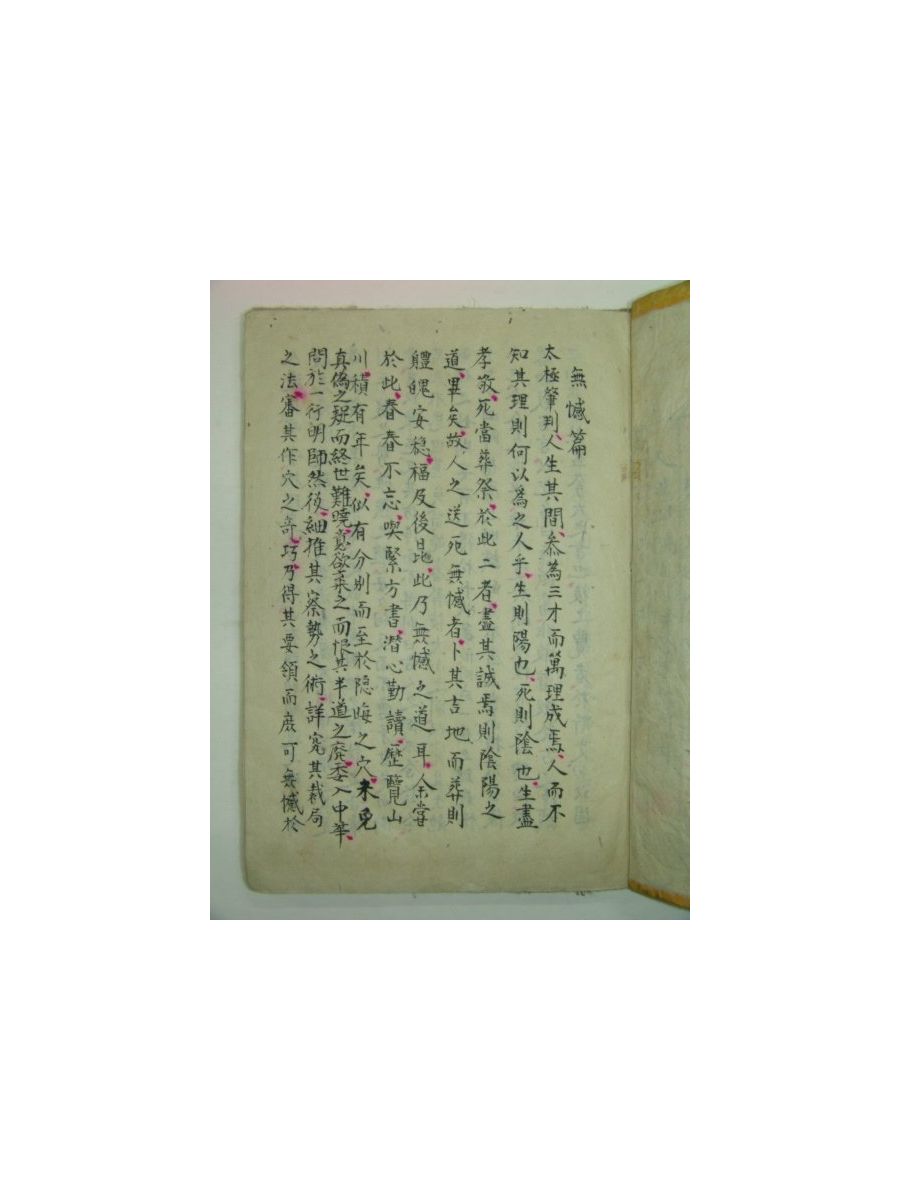 無憾篇
太極肇判人生其間叅為三才而萬理成焉人而不
知其理則何以為之人乎生則陽也死則陰也生盡
孝敬死當葬祭於此二者盡其誠焉則陰陽之
道畢矣故人之送死無憾者卜其吉地而葬則
體魄安稳福及後昆此乃無憾之道耳余嘗
於此眷眷不忘喫緊方書潜心勤讀歷覽山
川積有年矣似有分別而至於隐晦之穴未免
真偽之疑而終世難曉意欲棄之而恨其半道之廢委入中華
問於一行明師然後細推其察勢之術詳究其裁局
之法審其作穴之奇巧乃得其要領而庶可無憾於